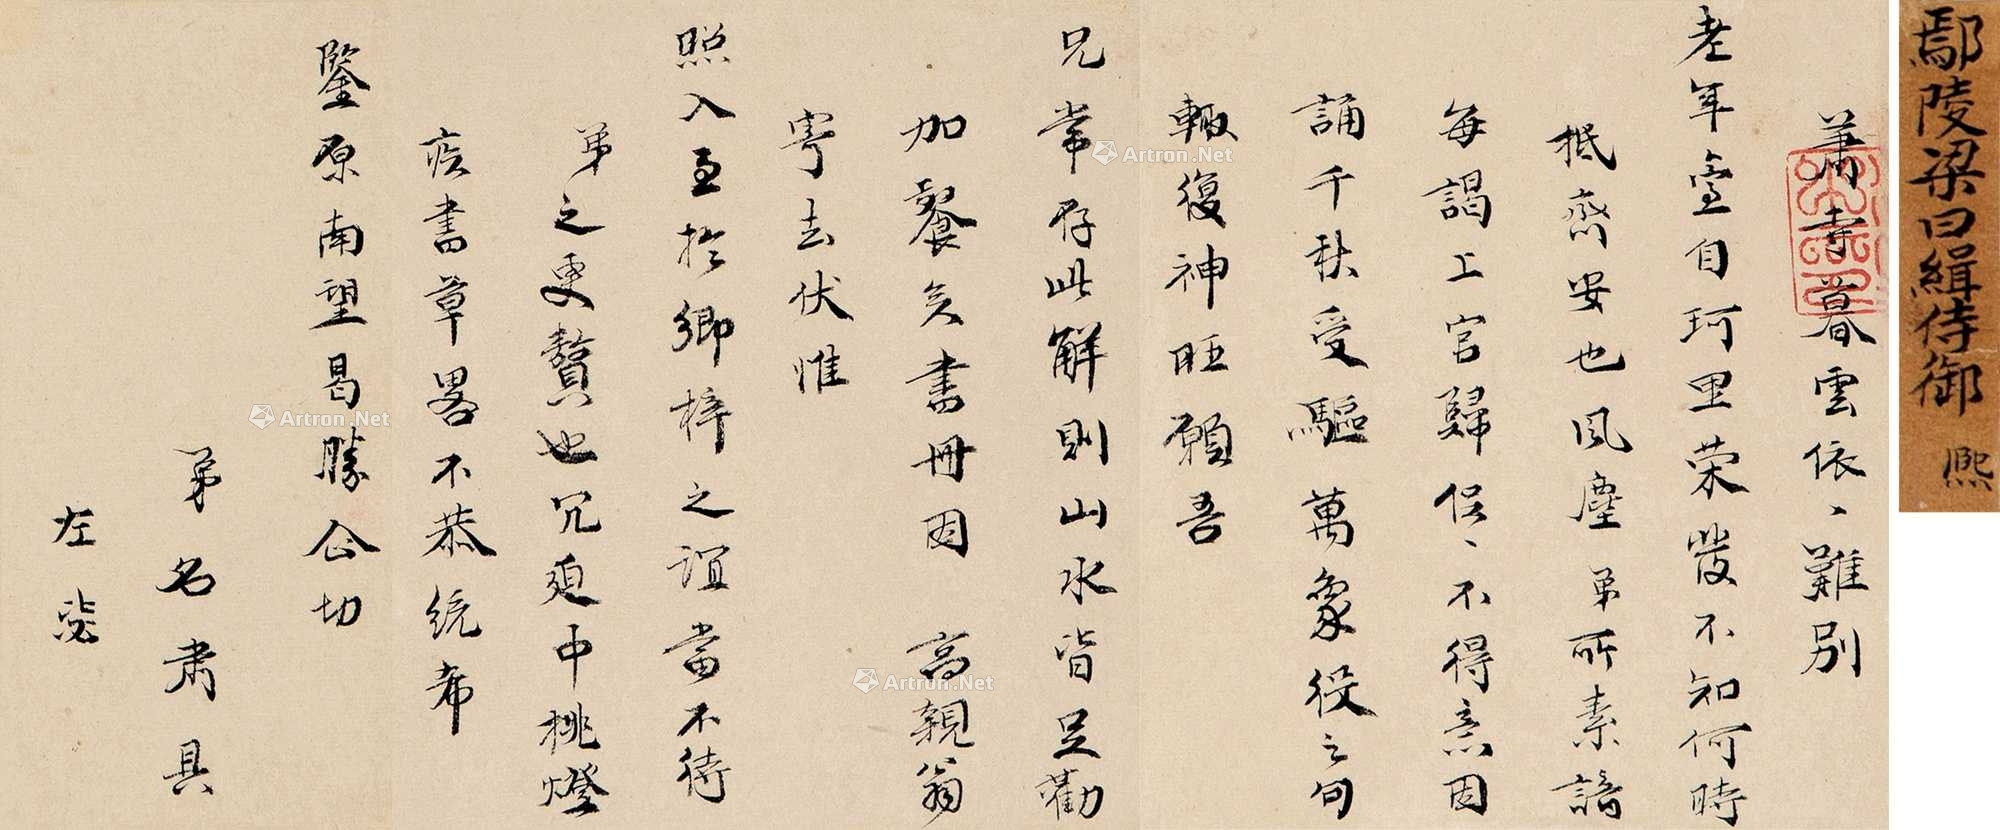 鄢陵梁曰緝侍御 熙
蕭寺暮雲依、難別
老年臺自珂里荣發不知何時
抵齋安也風塵弟所素諳
每謁上官歸侶、不得意因
誦千秋受驅萬象役之句
輙復神旺願吾
兄常存此解則山水皆足勸
加餐矣書冊因 高親翁
寄去伏惟
照入至於鄉梓之誼當不待
弟之更贅也冗迫中挑燈
疾書草畧不恭統希
鑒原南望曷勝企切
弟名肅具
左
Artron.Net
Artron.Net
Artron.Net